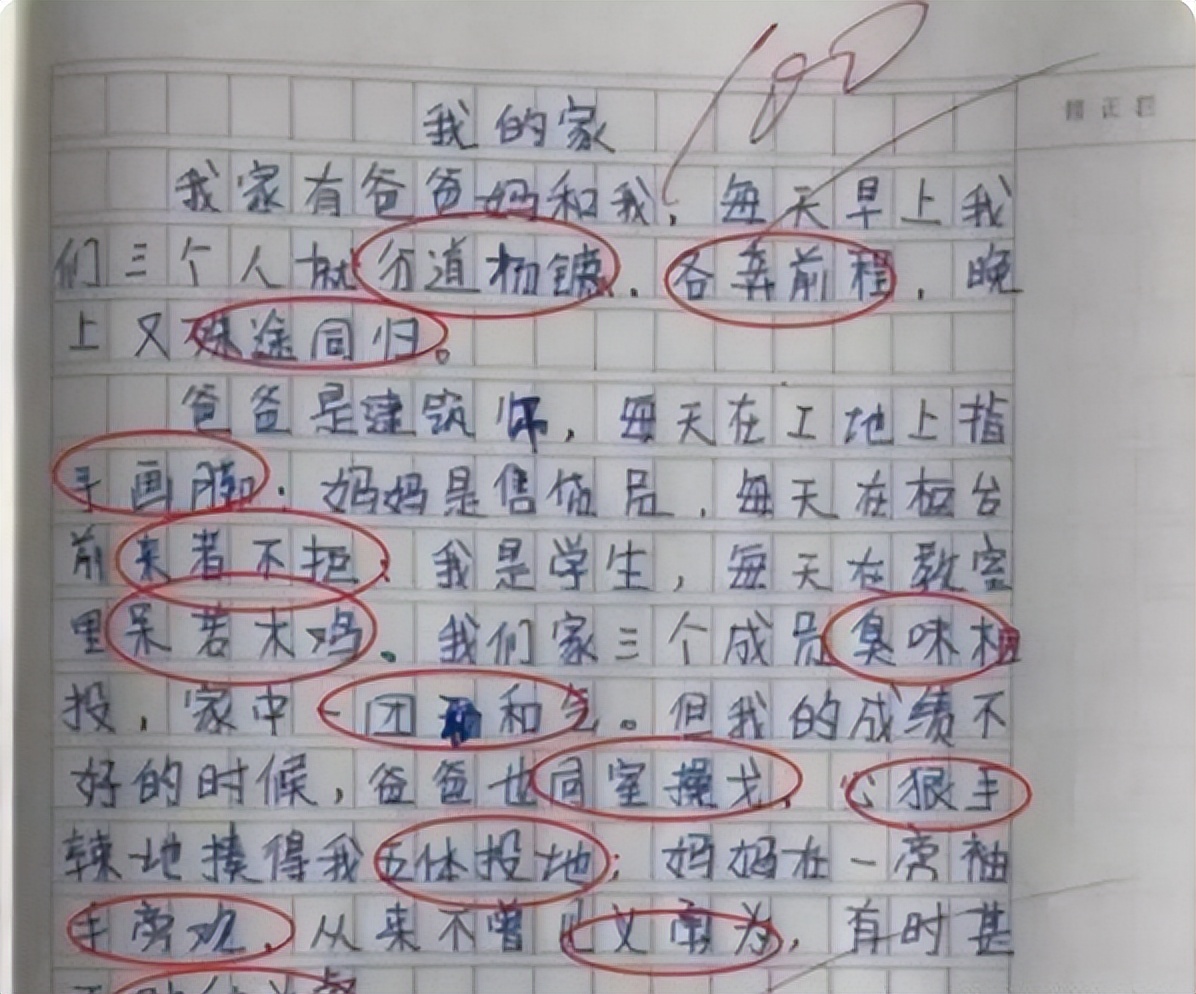 100
修正栏
我的家
我家有爸爸妈和我，每天早上我
们三个人就分道杨镳，各奔前程，晚
上又殊途同归。
爸爸是建筑师，每天在工地上指
手画脚；妈妈是售货员，每天在柜台
前来者不拒，我是学生，每天在教室
里呆若木鸡。我们家三个成员臭味相
投，家中一团和气。但我的成绩不
好的时候，爸爸也同室操戈，心狠手
辣地揍得我五体投地；妈妈在一旁袖
手旁观，从来不曾见义勇为，有时甚